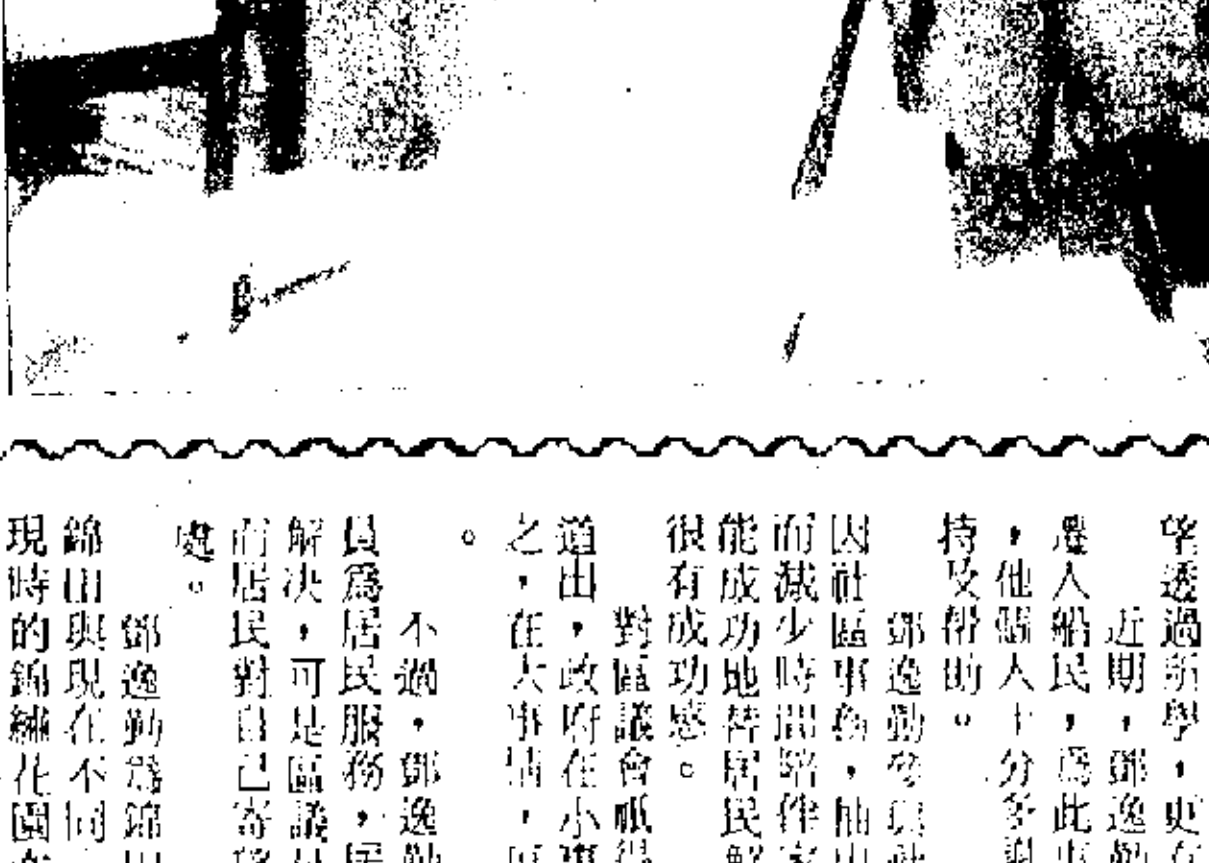 望透過所學，更
近期，鄧逸勤
人船民，為此事
，他個人十分多謝
持及帮助。
鄧逸勤參與社
因社區事務，抽出
而減少時間陪伴家
能成功地替居民解
很有成功感。
對區議會祇得
道出，政府在小事
之，在大事情，區
。
不過，鄧逸勤
員爲居民服務，居
解决，可是區議員
而居民對自己寄
處。
鄧逸勤爲錦田
錦田與現在不同
現時的錦繡花園